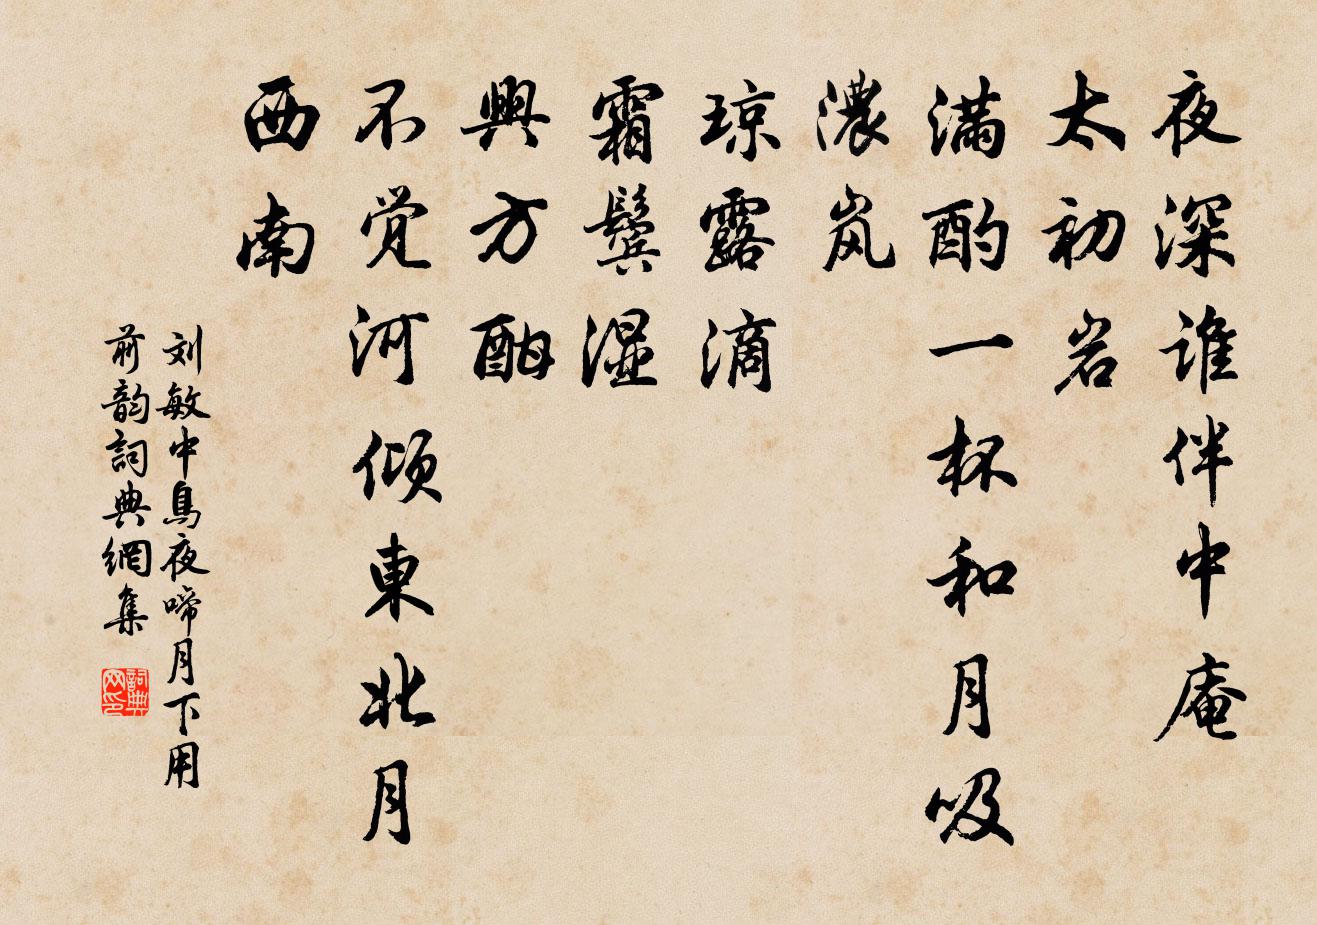 夜深谁伴中庵
太初岩
满酌一杯和月吸
濃岚
琼露滴
霜鬓湿
興方酣
不觉河倾東北月
西南
刘敏中烏夜啼月下用
前韵詞典網集
詞典网印